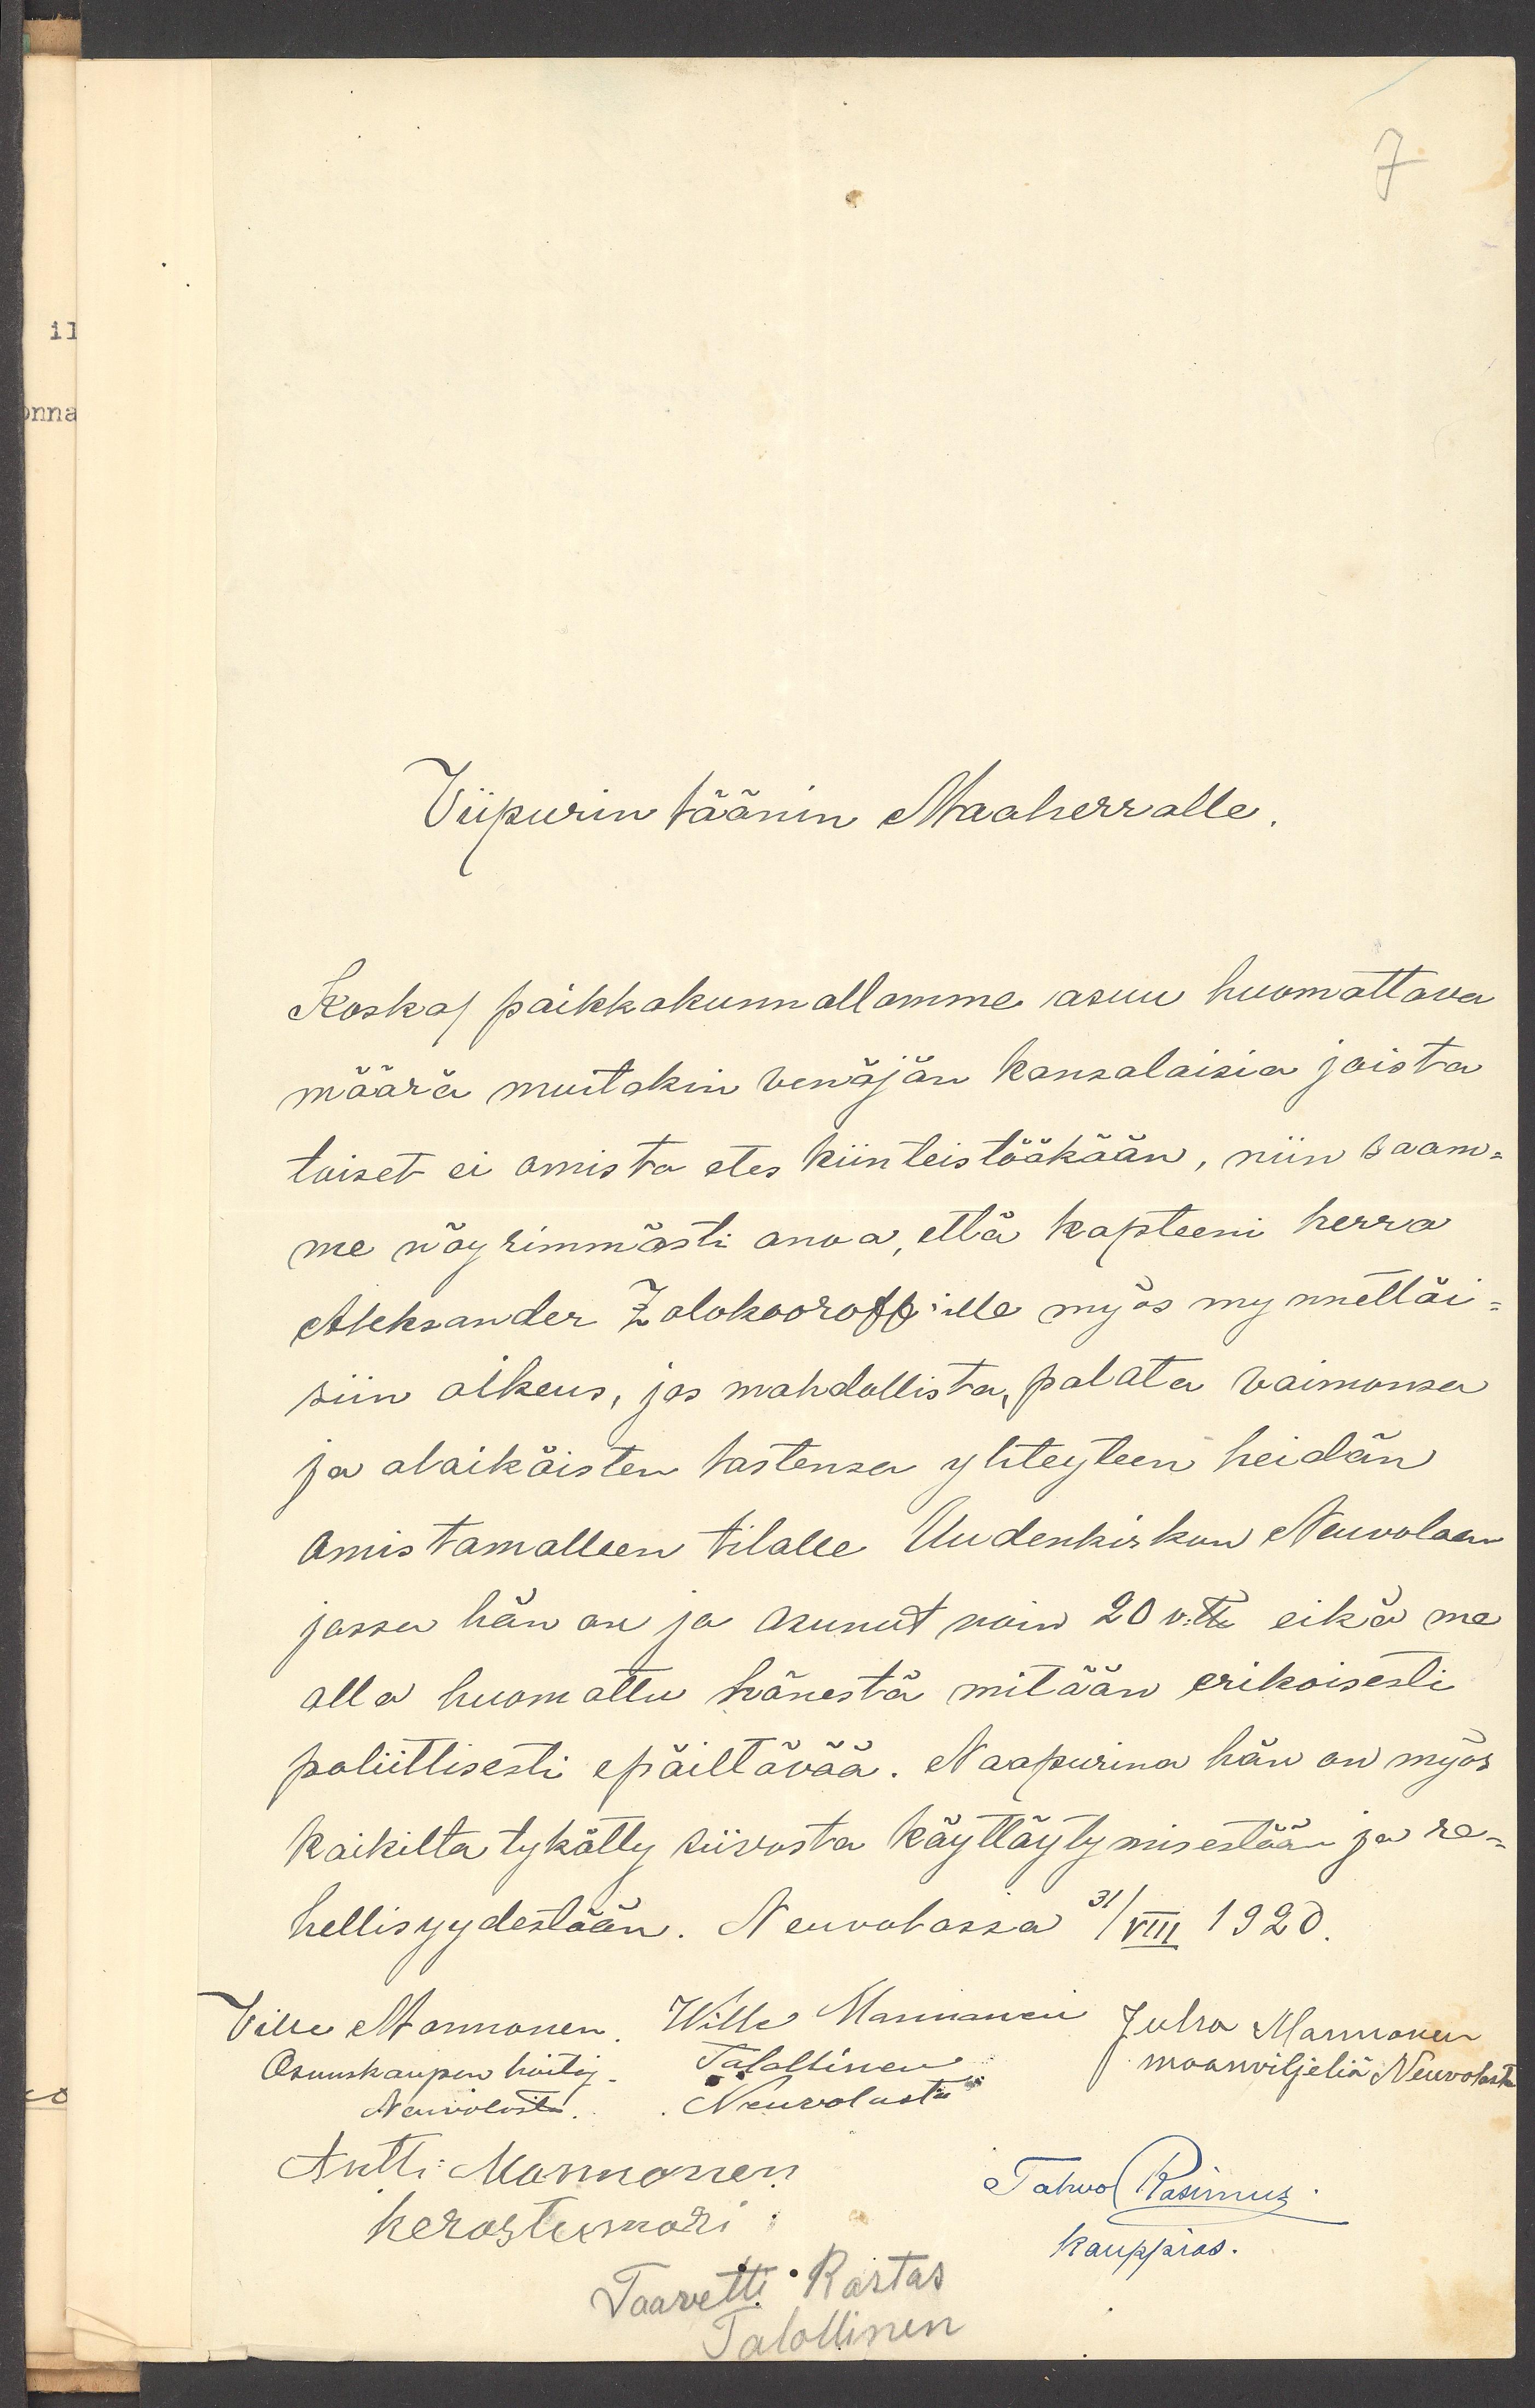 7
il
onna
Viipurin läänin Maaherralle.
Koska paikkakunnallamme asuu huomattava
määrä muitakin venäjän kansalaisia joista
toiset ei omista etes kiinteistöäkään, niin saam=
me nöyrimmästi anoa, että kapteeni herra
Aleksander Zolokooroff'ille myös mynnettäi=
siin oikeus, jos mahdollista, palata vaimonsa
ja alaikäisten lastensa yhteyteen heidän
omistamalleen tilalle Uudenkirkon Neuvolaan
jossa hän on jo asunut noin 20 v:tta eikä me
olla huomattu hänestä mitään erikoisesti
poliittisesti epäiltävää. Naapurina hän on myös
kaikilta tykätty siivosta käyttäytymisestään ja re=
hellisyydestään. Neuvolassa 31/VIII 1920.
Ville Mannonen. Wille Mannonen Juho Mannonen
Osuuskaupan hoitaj. Talollinen maanviljeliä Neuvolasta
Neuvolasta. Neuvolasta
Antti Mannonen Tahvo Rasimus.
herastuomari kauppias.
Taavetti Rastas
Talollinen